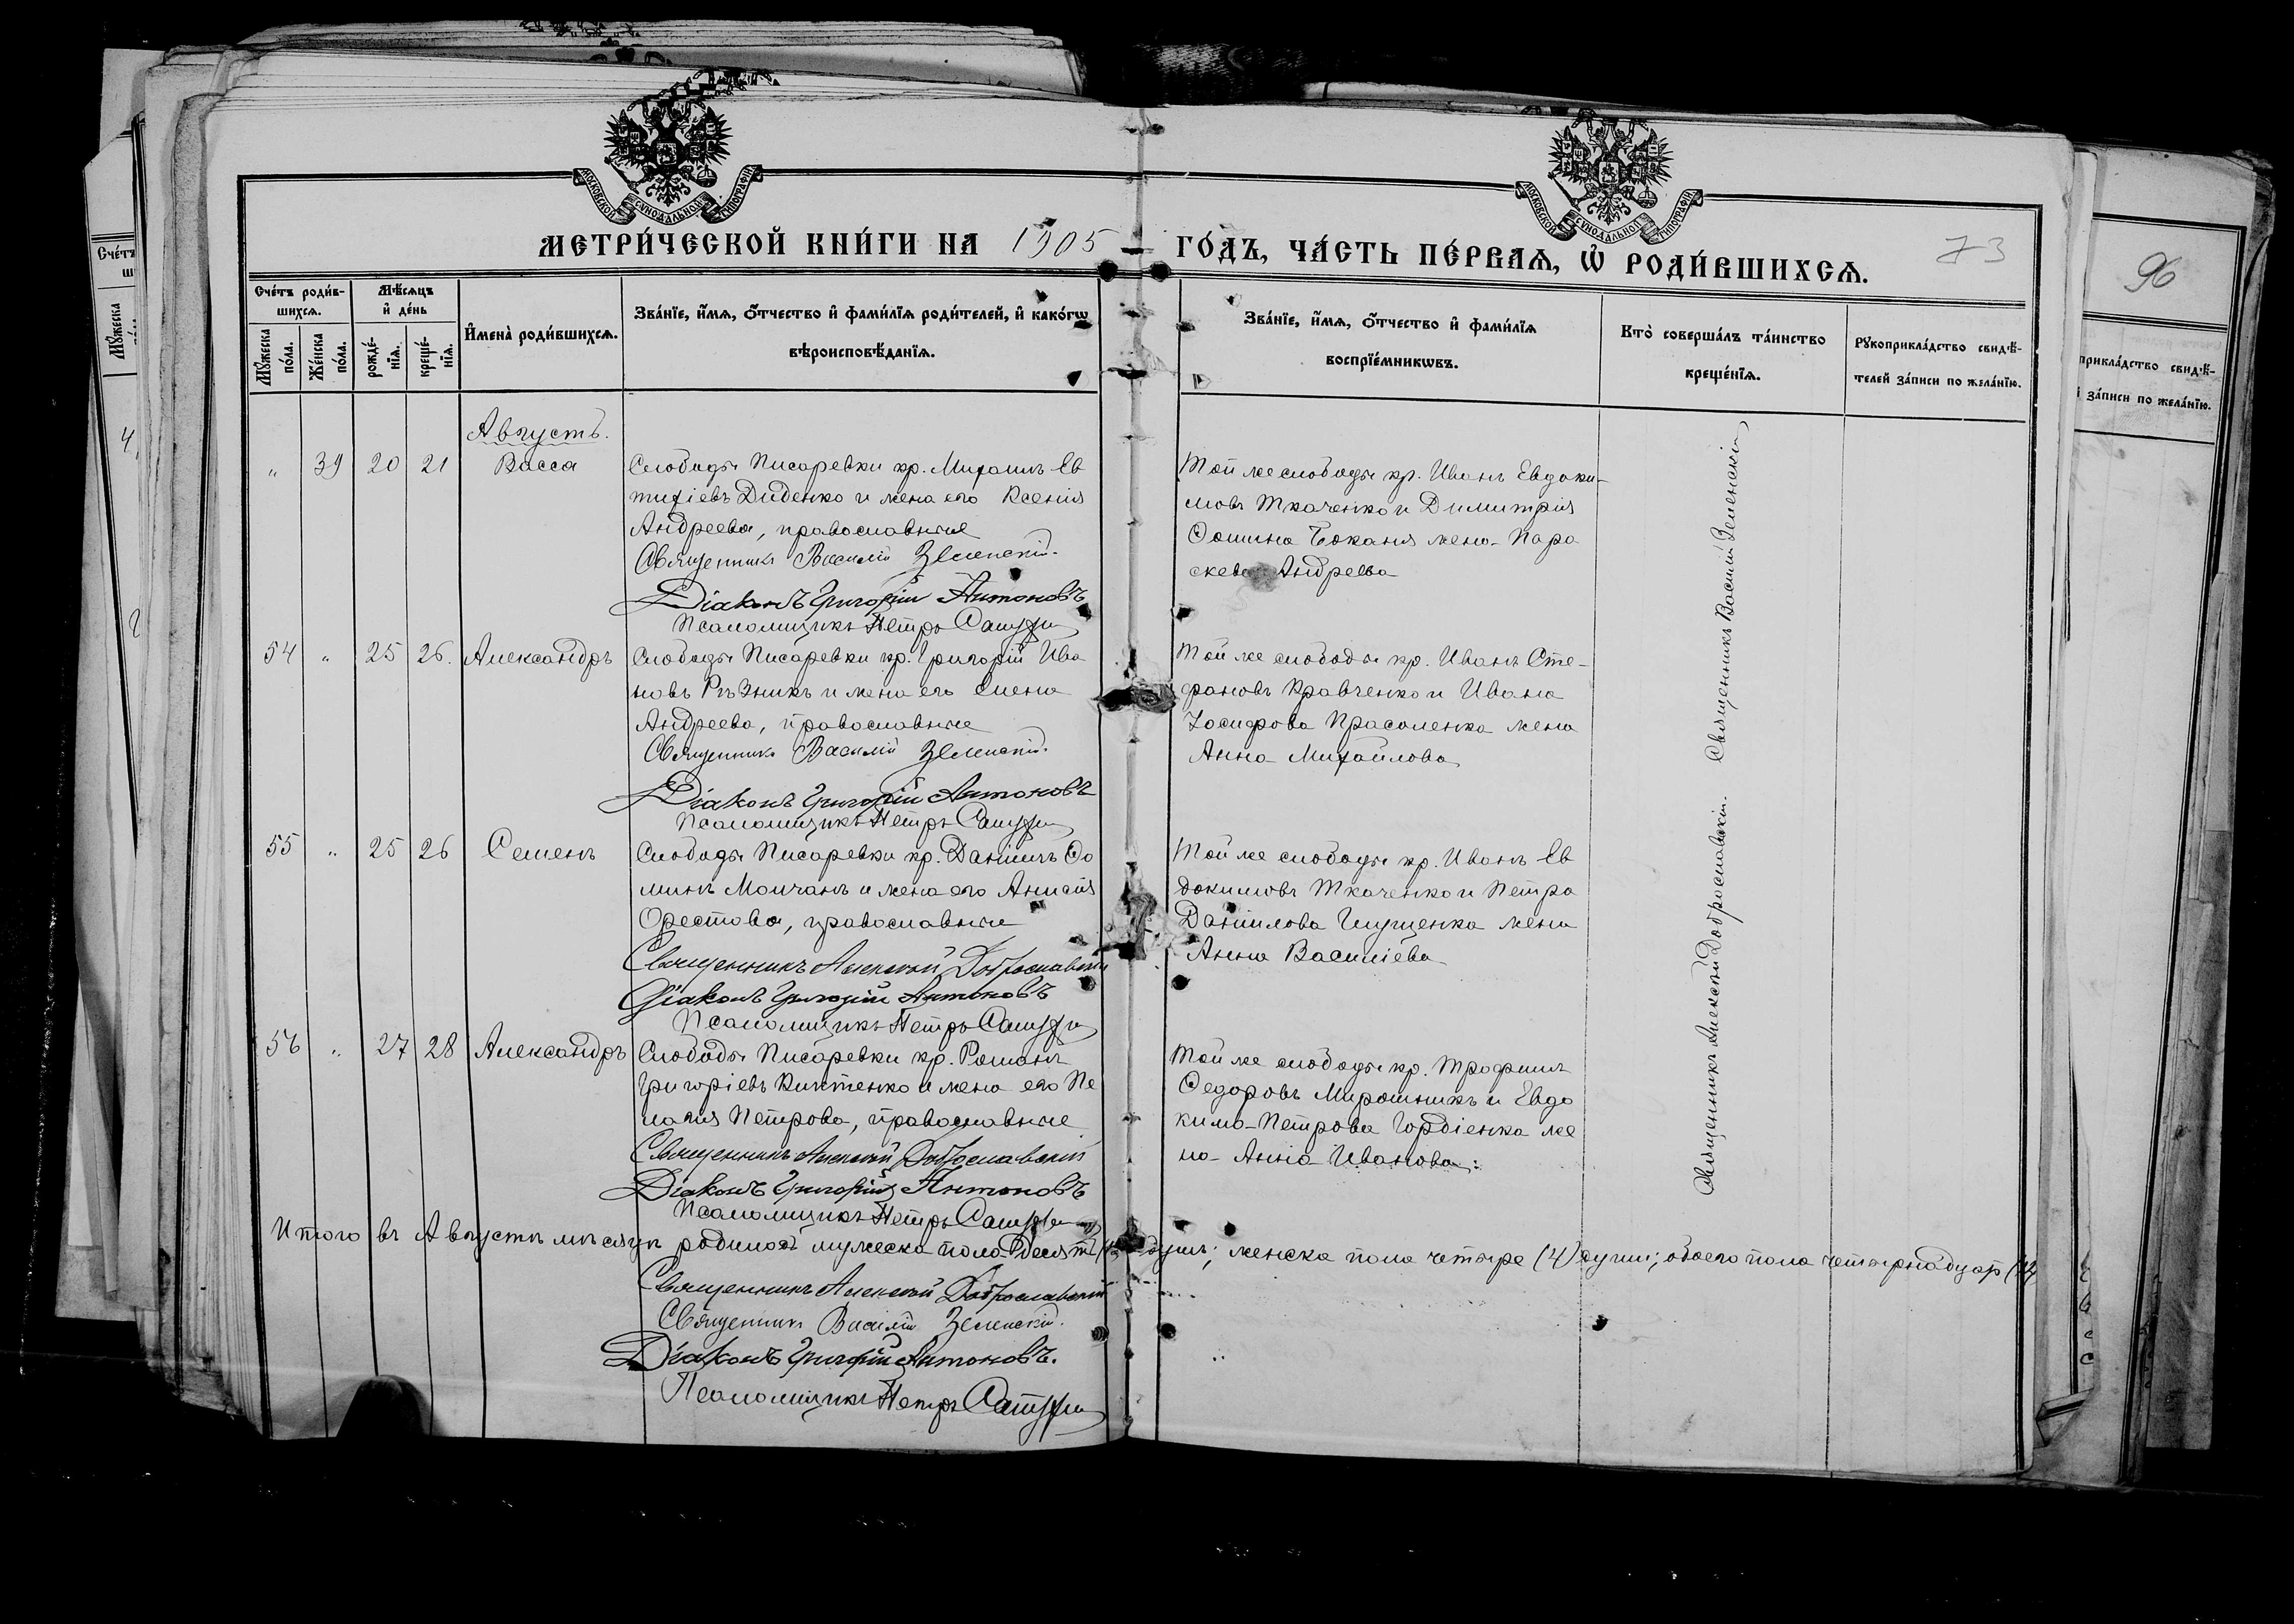 МОСКОВСКОЙ СѴНОДАЛЬНОЙ ТИПОГРАФІИ
МОСКОВСКОЙ СѴНОДАЛЬНОЙ ТИПОГРАФІИ
МЕТРИ́ЧЕСКОЙ КНИ́ГИ НА 1905 ГО́ДЪ, ЧА́СТЬ ПЕ́РВАЯ, Ѡ҆ РОДИ́ВШИХСЯ.
73
96
Сче́тъ роди́в-
шихся.
Мꙋ́жеска по́ла.
Же́нска по́ла.
Мѣ́сяцъ
и҆ де́нь
рожде́-нїѧ.
креще́-нїѧ.
И҆мена̀ роди́вшихсѧ.
Зва́нїе, и҆́мѧ, ѻ҆́тчество и҆ фами́лїѧ роди́телей, и҆ како́гѡ
вѣроисповѣ́данїѧ.
Зва́нїе, и҆́мѧ, ѻ҆́тчество и҆ фами́лїѧ
воспрїе́мникѡвъ.
Кто̀ соверша́лъ та́инство
креще́нїѧ.
Рꙋкоприкла́дство свидѣ́-
телей за́писи по жела́нїю.
прикла́дство свидѣ́-
за́писи по жела́нїю.
Августъ.
„ 39 20 21 Васса
Слободы Писаревки кр. Михаилъ Ев
тихіевъ Диденко и жена его Ксенія
Андреева, православные
Священникъ Василій Зеленскій.
Діаконъ Григорій Антоновъ
Псаломщикъ Петръ
Той же слободы кр. Иванъ Евдоки-
мовъ Ткаченко и Димитрія
Ѳомина Боканя жена Пара
скева Андреева
54 „ 25 26. Александръ
Слободы Писаревки кр. Григорій Ива
новъ Рѣзникъ и жена его Елена
Андреева, православные
Священникъ Василій Зеленскій.
Діаконъ Григорій Антоновъ
Псаломщикъ Петръ
Той же слободы кр. Иванъ Сте-
фановъ Кравченко и Ивана
Іосифова Прасоленка жена
Анна Михайлова
55 „ 25 26 Семенъ
Слободы Писаревки кр. Даніилъ Ѳо
минъ Молчанъ и жена его
Орестова, православные
Священникъ Алексѣй Доброславскій
Діаконъ Григорій Антоновъ
Псаломщикъ Петръ
Той же слободы кр. Иванъ Ев
докимовъ Ткаченко и Петра
Даніилова жена
Анна Василіева
56 „ 27 28 Александръ
Слободы Писаревки кр. Романъ
Григоріевъ и жена его Пе
лагія Петрова, православные
Священникъ Алексѣй Доброславскій
Діаконъ Григорій Антоновъ
Псаломщикъ Петръ
Той же слободы кр. Трофимъ
Ѳедоровъ Мирошникъ и Евдо
кима Петрова Гордіенка же
на Анна Иванова.
Священникъ Алексѣй Доброславскій. Священникъ Василій Зеленскій
Итого въ Августѣ мѣсяцѣ родилось мужеска пола десять душъ; женска пола четыре (4) души; обоего пола четырнадцать (14)
Священникъ Алексѣй Доброславскій
Священникъ Василій Зеленскій.
Діаконъ Григорій Антоновъ.
Псаломщикъ Петръ